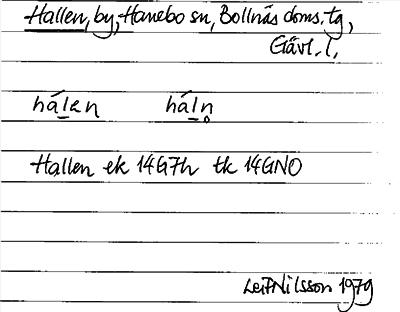 Hallen, by, Hanebo sn, Bollnäs doms. tg,
Gävl. l,
hálen háln
Hallen ek 14G7h tk 14GNO
Leif Nilsson 1979